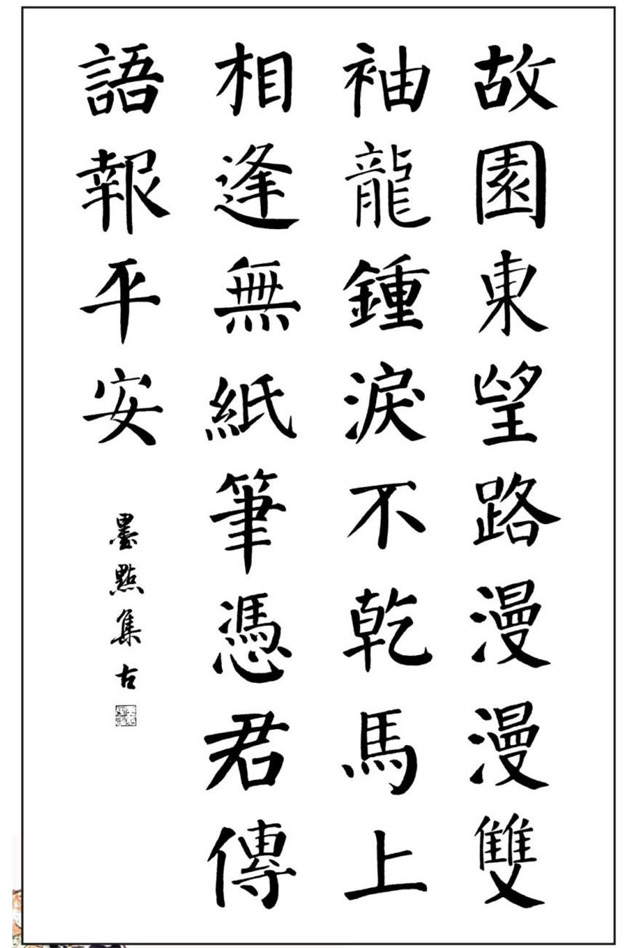 故園東望路漫漫雙
袖龍鍾淚不乾馬上
相逢無紙筆憑君傳
語報平安
墨點集古